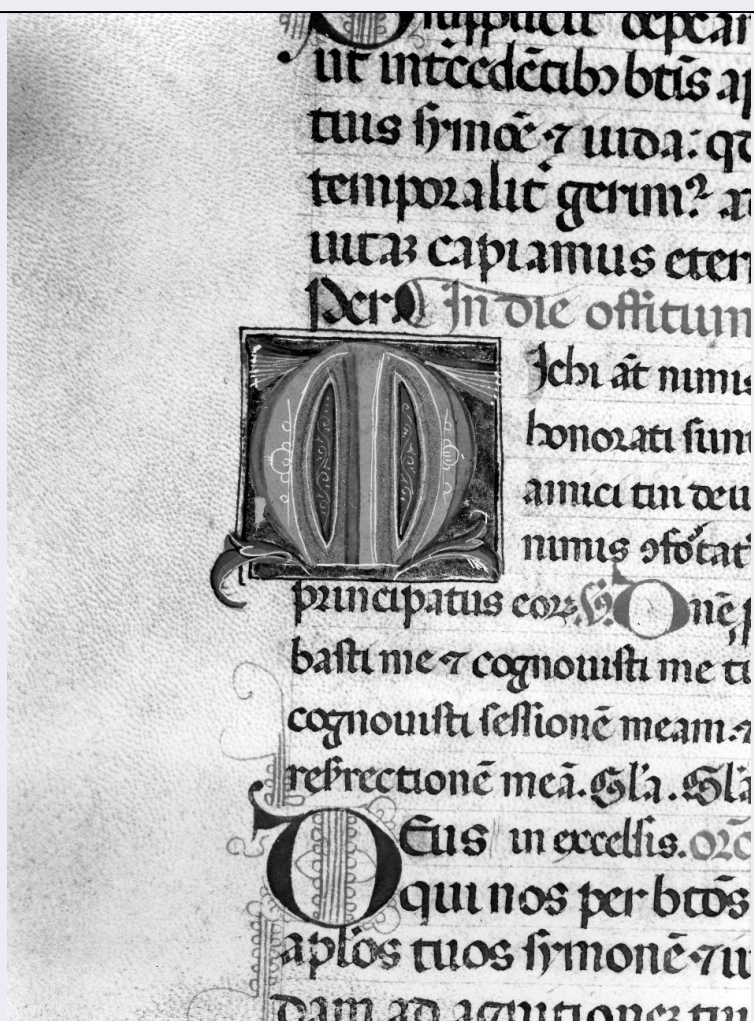 ut int̄cedētibꝫ btīs ap
tuis symōe ⁊ iuda: qͥ
temporalit̄ gerimꝰ
uitaꝫ capiamus eter
Per. In die offitium
M Ichi āt nimis
honorati sunt
amici tui deu
nimis ꝯfotat
principatus eoꝝ. D nē
basti me ⁊ cognouisti me tu
cognouisti sessionē meam. ⁊
resrectionē meā. Gl̄a. Gl̄a
D Eus in excelsis. orō
qui nos per btōs
aplōs tuos symonē ⁊ iu
dam ad agnitionem tui